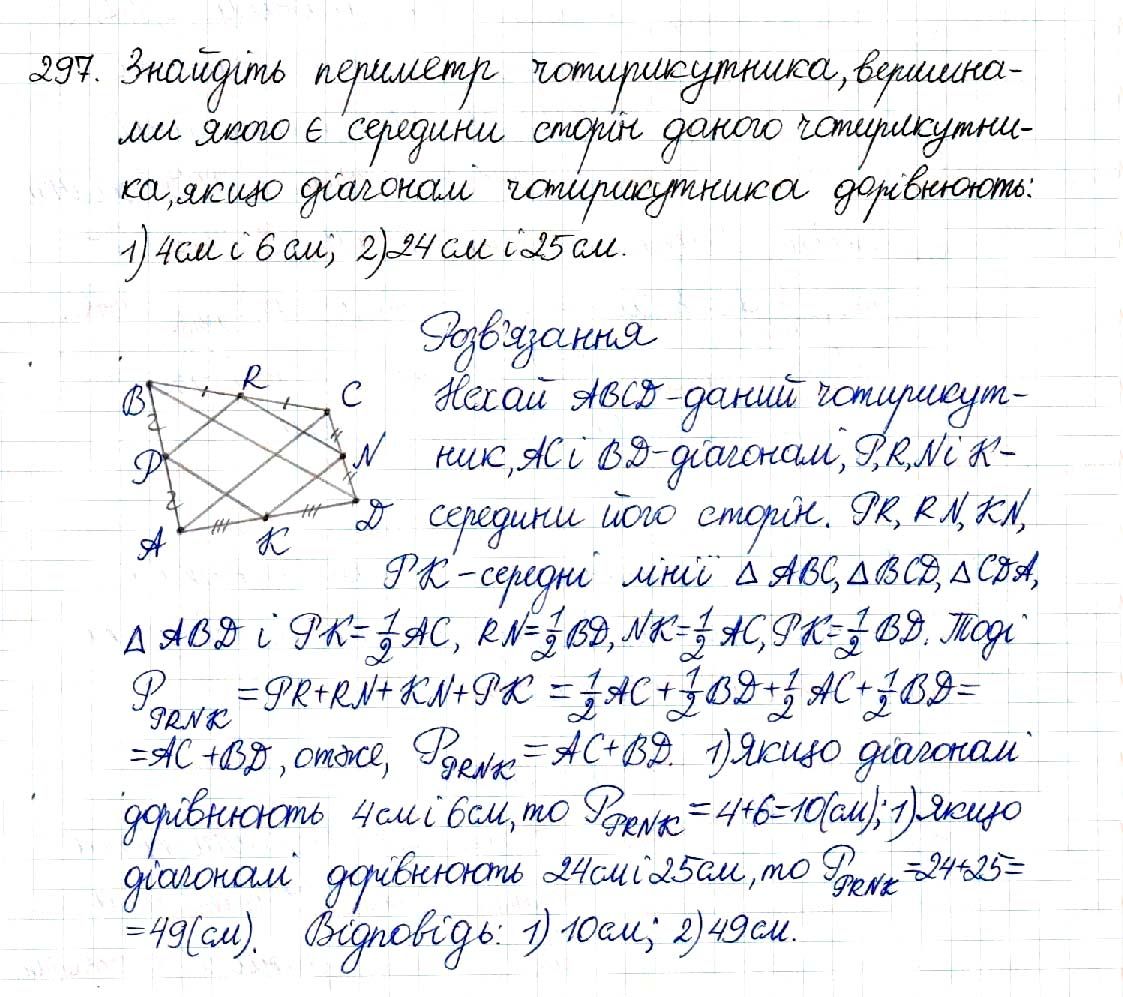 297. Знайдіть периметр чотирикутника, вершина-
ми якого є середини сторін даного чотирикутни-
ка, якщо діагоналі чотирикутника дорівнюють:
1) 4 см і 6 см; 2) 24 см і 25 см.
Розв'язання
B R C N D K A P
Нехай ABCD - даний чотирикут-
ник, AC і BD - діагоналі, P, R, N і K -
середини його сторін. PR, RN, KN,
PK - середні лінії △ ABC, △ BCD, △ CDA,
△ ABD і PK = 1/2 AC, RN = 1/2 BD, NK = 1/2 AC, PK = 1/2 BD. Тоді
P_PRNK = PR + RN + KN + PK = 1/2 AC + 1/2 BD + 1/2 AC + 1/2 BD =
= AC + BD, отже, P_PRNK = AC + BD. 1) Якщо діагоналі
дорівнюють 4 см і 6 см, то P_PRNK = 4 + 6 = 10 (см); 1) Якщо
діагоналі дорівнюють 24 см і 25 см, то P_PRNK = 24 + 25 =
= 49 (см). Відповідь: 1) 10 см; 2) 49 см.